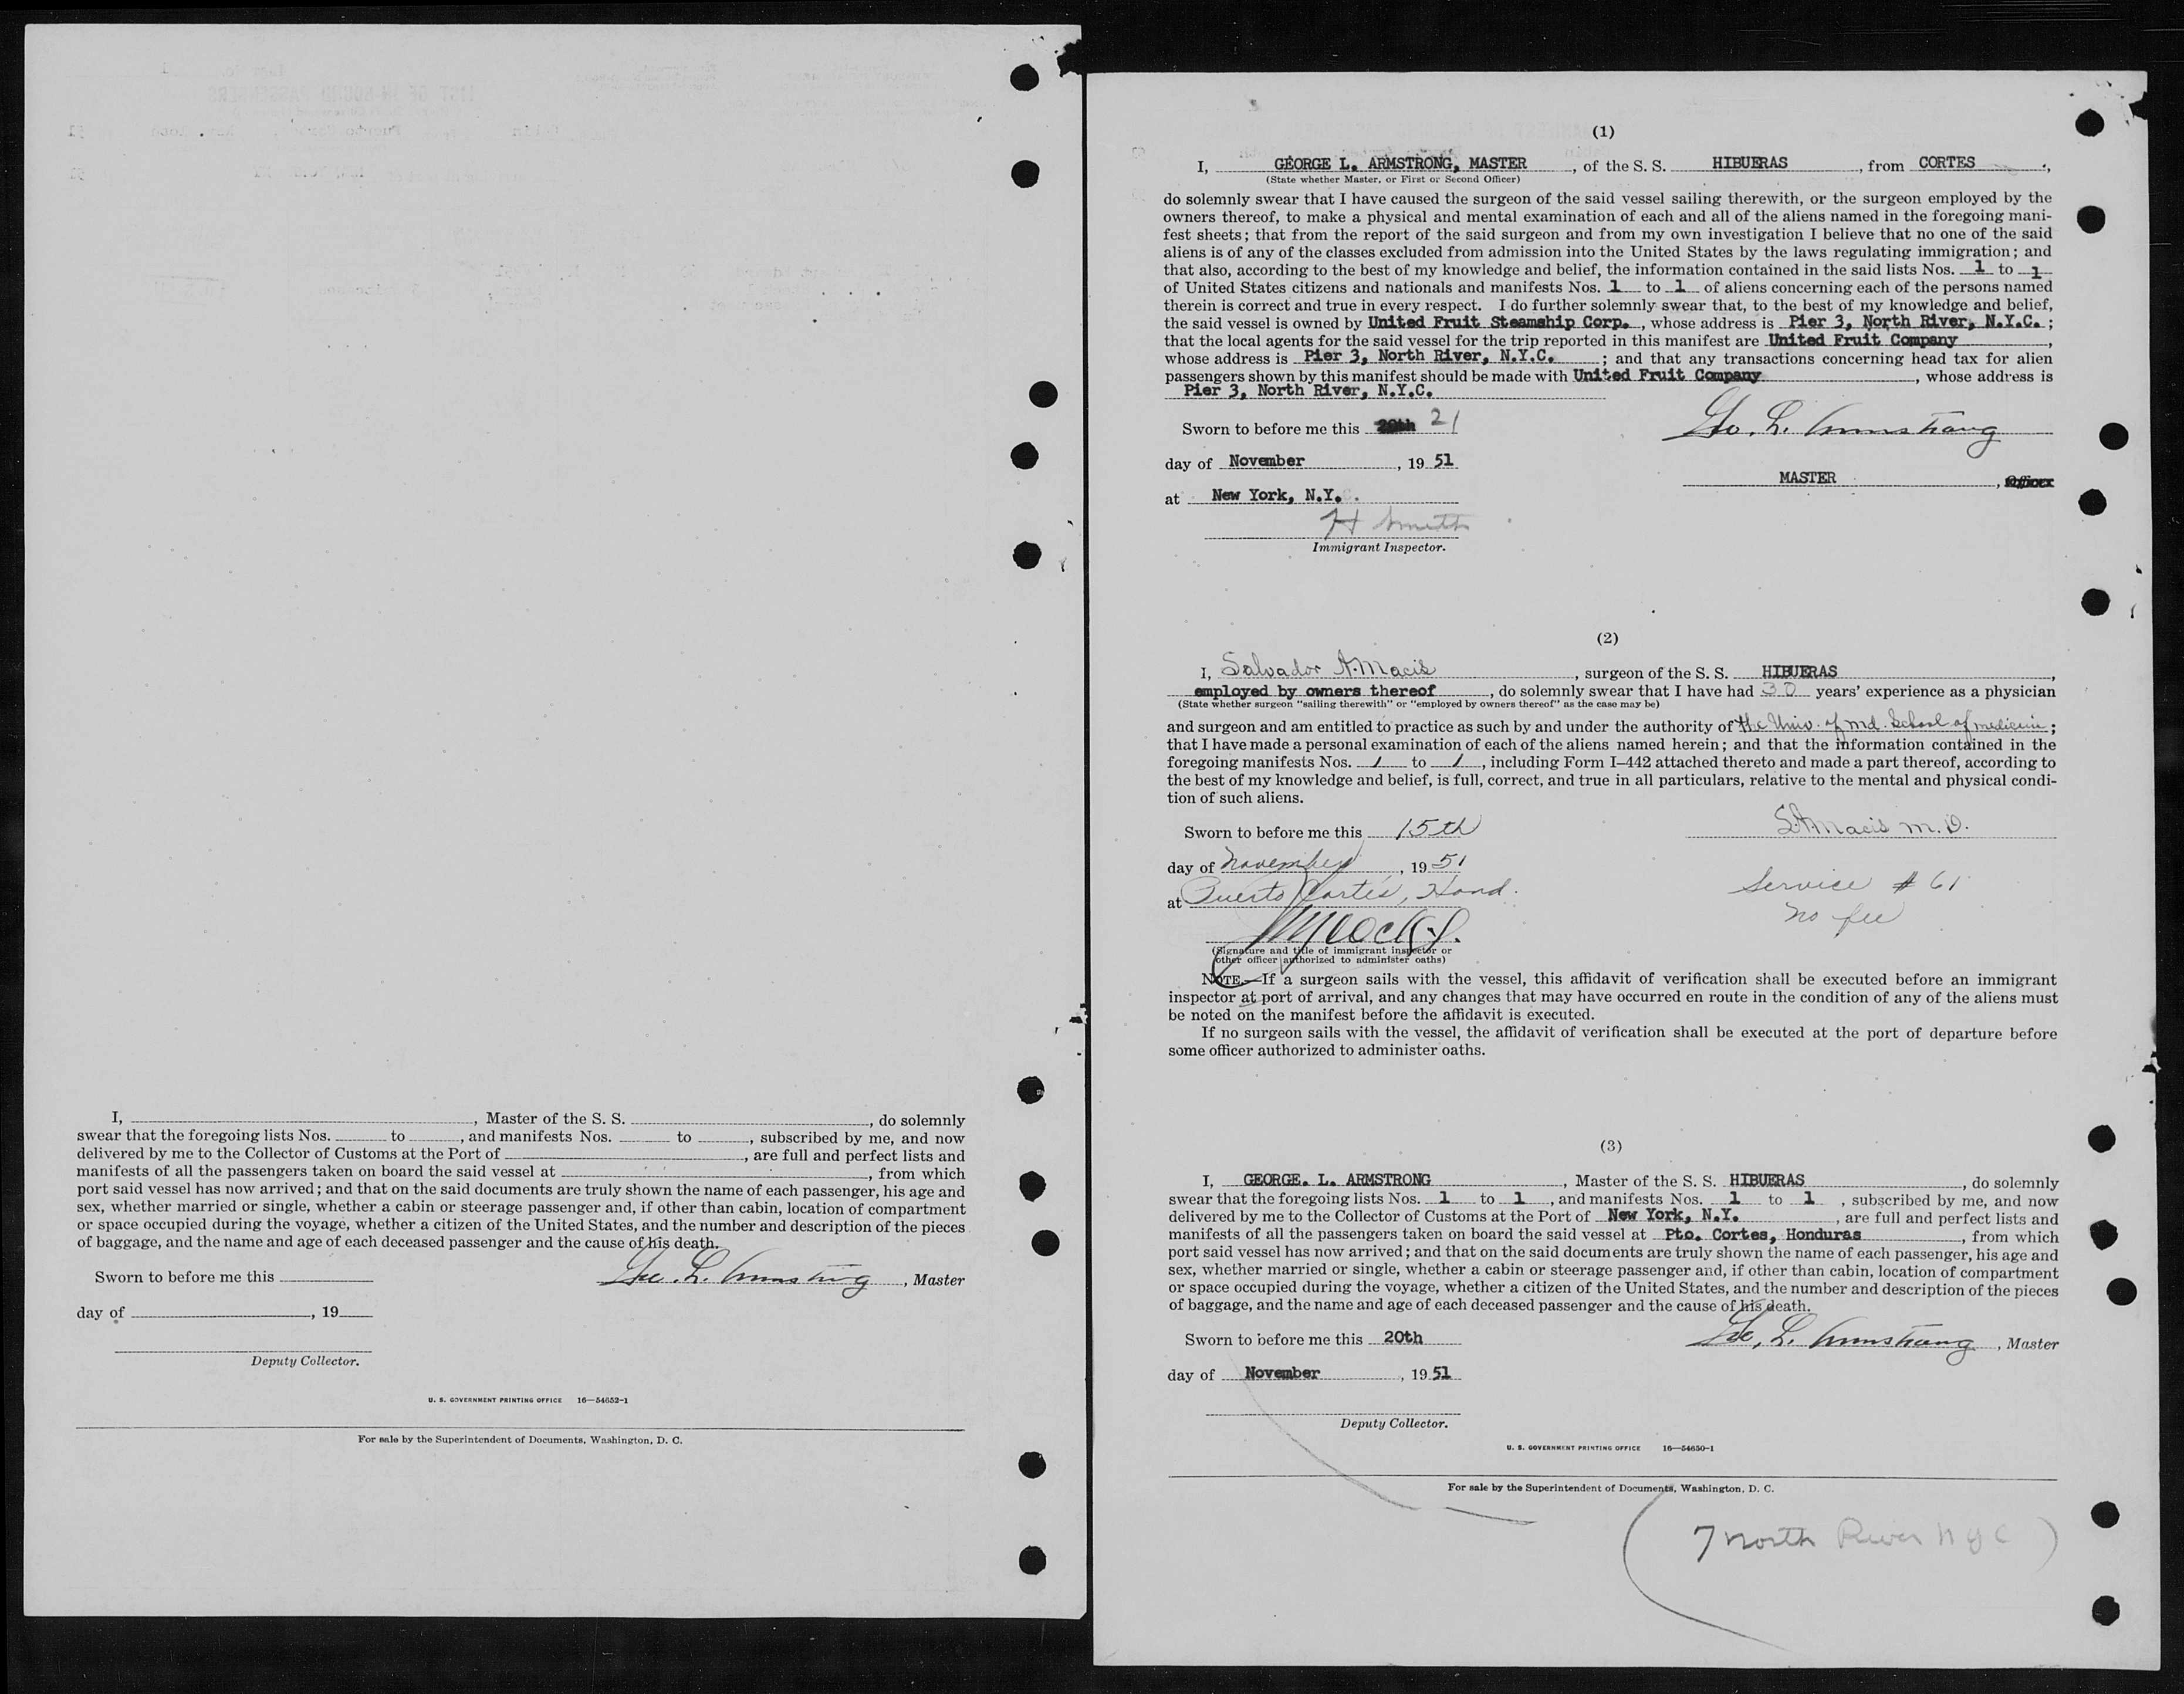 I, , Master of the S. S. , do solemnly
swear that the foregoing lists Nos. to , and manifests Nos. to , subscribed by me, and now
delivered by me to the Collector of Customs at the Port of , are full and perfect lists and
manifests of all the passengers taken on board the said vessel at , from which
port said vessel has now arrived; and that on the said documents are truly shown the name of each passenger, his age and
sex, whether married or single, whether a cabin or steerage passenger and, if other than cabin, location of compartment
or space occupied during the voyage, whether a citizen of the United States, and the number and description of the pieces
of baggage, and the name and age of each deceased passenger and the cause of his death.
Sworn to before me this Geo. L. Armstrong , Master
day of , 19
Deputy Collector.
U. S. GOVERNMENT PRINTING OFFICE 16—54652-1
For sale by the Superintendent of Documents, Washington, D. C.
(1)
I, GEORGE L. ARMSTRONG, MASTER , of the S. S. HIBUERAS , from CORTES ,
(State whether Master, or First or Second Officer)
do solemnly swear that I have caused the surgeon of the said vessel sailing therewith, or the surgeon employed by the
owners thereof, to make a physical and mental examination of each and all of the aliens named in the foregoing mani-
fest sheets; that from the report of the said surgeon and from my own investigation I believe that no one of the said
aliens is of any of the classes excluded from admission into the United States by the laws regulating immigration; and
that also, according to the best of my knowledge and belief, the information contained in the said lists Nos. 1 to 1
of United States citizens and nationals and manifests Nos. 1 to 1 of aliens concerning each of the persons named
therein is correct and true in every respect. I do further solemnly swear that, to the best of my knowledge and belief,
the said vessel is owned by United Fruit Steamship Corp. , whose address is Pier 3, North River, N.Y.C. ;
that the local agents for the said vessel for the trip reported in this manifest are United Fruit Company ,
whose address is Pier 3, North River, N.Y.C. ; and that any transactions concerning head tax for alien
passengers shown by this manifest should be made with United Fruit Company , whose address is
Pier 3, North River, N.Y.C.
Sworn to before me this 20th 21 Geo. L. Armstrong
day of November , 19 51
MASTER , Officer
at New York, N.Y.
H Smith
Immigrant Inspector.
(2)
I, Salvador A. Macis , surgeon of the S. S. HIBUERAS ,
employed by owners thereof , do solemnly swear that I have had 30 years' experience as a physician
(State whether surgeon "sailing therewith" or "employed by owners thereof" as the case may be)
and surgeon and am entitled to practice as such by and under the authority of the Univ. of Md. School of medicin ;
that I have made a personal examination of each of the aliens named herein; and that the information contained in the
foregoing manifests Nos. 1 to 1 , including Form I–442 attached thereto and made a part thereof, according to
the best of my knowledge and belief, is full, correct, and true in all particulars, relative to the mental and physical condi-
tion of such aliens.
Sworn to before me this 15th S. A. Macis M. D.
day of November , 19 51
at Puerto Cortés, Hond. Service # 61
No fee
(Signature and title of immigrant inspector or
other officer authorized to administer oaths)
NOTE.—If a surgeon sails with the vessel, this affidavit of verification shall be executed before an immigrant
inspector at port of arrival, and any changes that may have occurred en route in the condition of any of the aliens must
be noted on the manifest before the affidavit is executed.
If no surgeon sails with the vessel, the affidavit of verification shall be executed at the port of departure before
some officer authorized to administer oaths.
(3)
I, GEORGE. L. ARMSTRONG , Master of the S. S. HIBUERAS , do solemnly
swear that the foregoing lists Nos. 1 to 1 , and manifests Nos. 1 to 1 , subscribed by me, and now
delivered by me to the Collector of Customs at the Port of New York, N.Y. , are full and perfect lists and
manifests of all the passengers taken on board the said vessel at Pto. Cortes, Honduras , from which
port said vessel has now arrived; and that on the said documents are truly shown the name of each passenger, his age and
sex, whether married or single, whether a cabin or steerage passenger and, if other than cabin, location of compartment
or space occupied during the voyage, whether a citizen of the United States, and the number and description of the pieces
of baggage, and the name and age of each deceased passenger and the cause of his death.
Sworn to before me this 20th Geo. L. Armstrong , Master
day of November , 19 51
Deputy Collector.
U. S. GOVERNMENT PRINTING OFFICE 16—54650-1
For sale by the Superintendent of Documents, Washington, D. C.
(7 North River NYC)